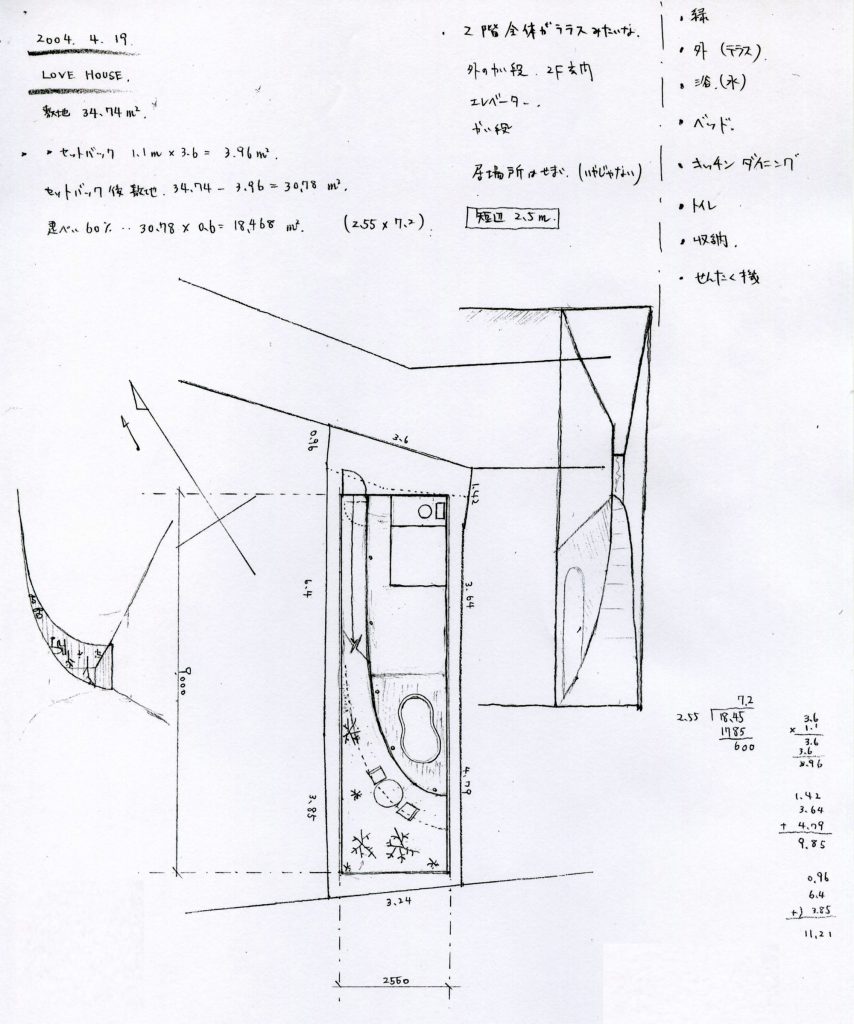 2004. 4. 19.
LOVE HOUSE.
敷地 34.74 m².
・セットバック 1.1m × 3.6 = 3.96 m².
セットバック後敷地. 34.74 - 3.96 = 30.78 m².
建ペい 60% ‥ 30.78 × 0.6 = 18.468 m². (2.55 × 7.2)
・2階全体がテラスみたいな.
外のかい段. 2F玄関
エレベーター.
かい段
居場所はせまい. (いやじゃない)
短辺 2.5m.
・緑
・外 (テラス)
・浴. (水)
・ベッド.
・キッチン ダイニング
・トイレ
・収納.
・せんたく機
0.96
3.6
1.42
6.4
3.64
9000
4.79
3.85
3.24
2550
7.2
2.55 18.45
1785
600
3.6
× 1.1
3.6
3.6
3.96
1.42
3.64
+ 4.79
9.85
0.96
6.4
+) 3.85
11.21